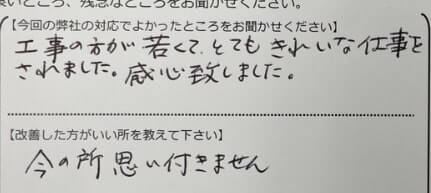 良いところ、残念なところをお聞かせください。
【今回の弊社の対応でよかったところをお聞かせください】
工事の方が若くて、とてもきれいな仕事を
されました。感心致しました。
【改善した方がいい所を教えて下さい】
今の所思い付きません